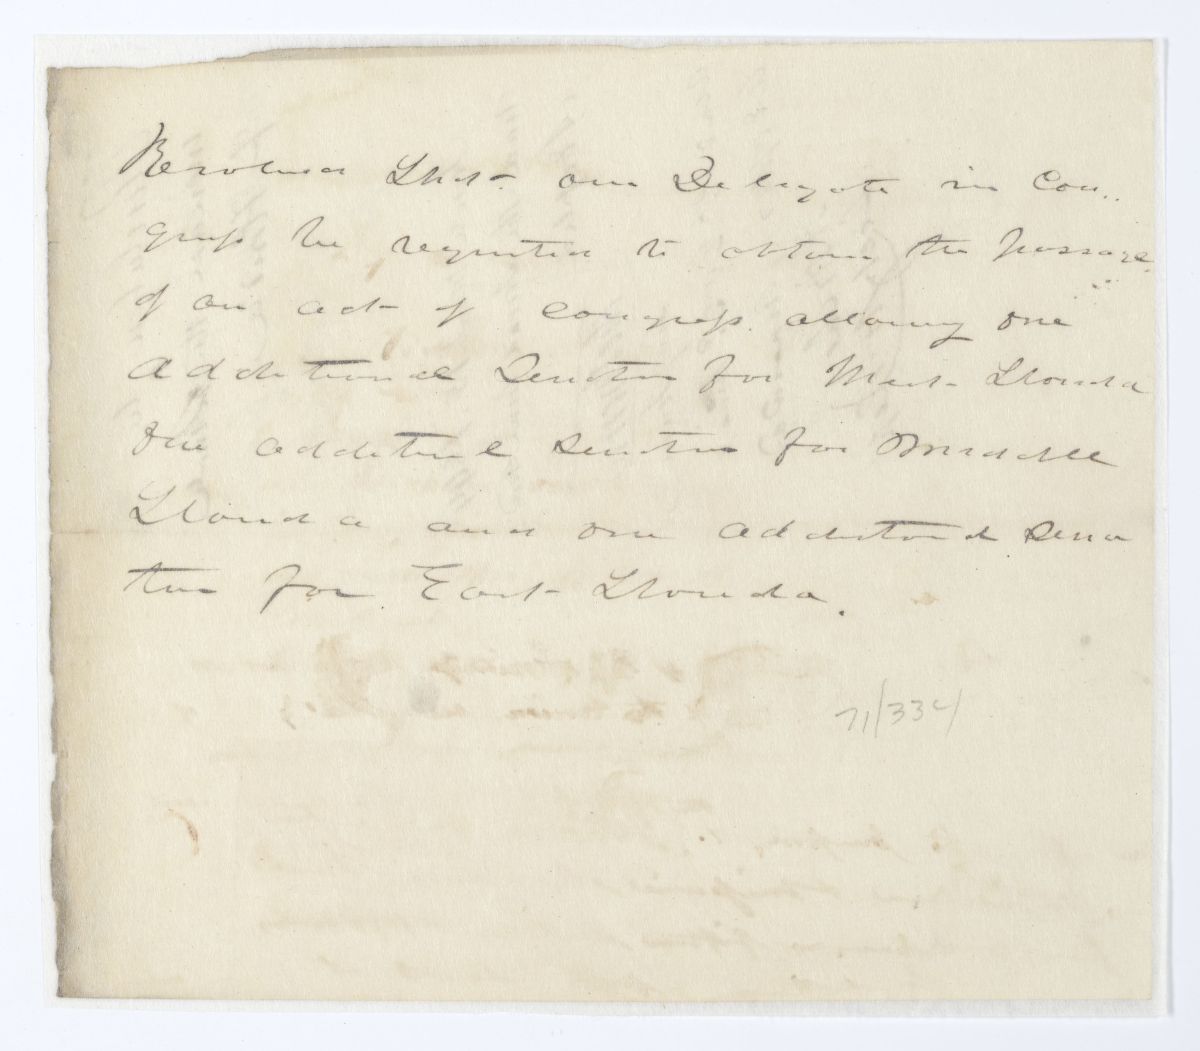 Resolved That our Delegate in Con..
gress be requested to obtain the passage
of an act of congress allowing one
Additional Senator for West Florida
One additional Senator for Middle
Florida and one additional Sena
tor for East Florida.
71/334